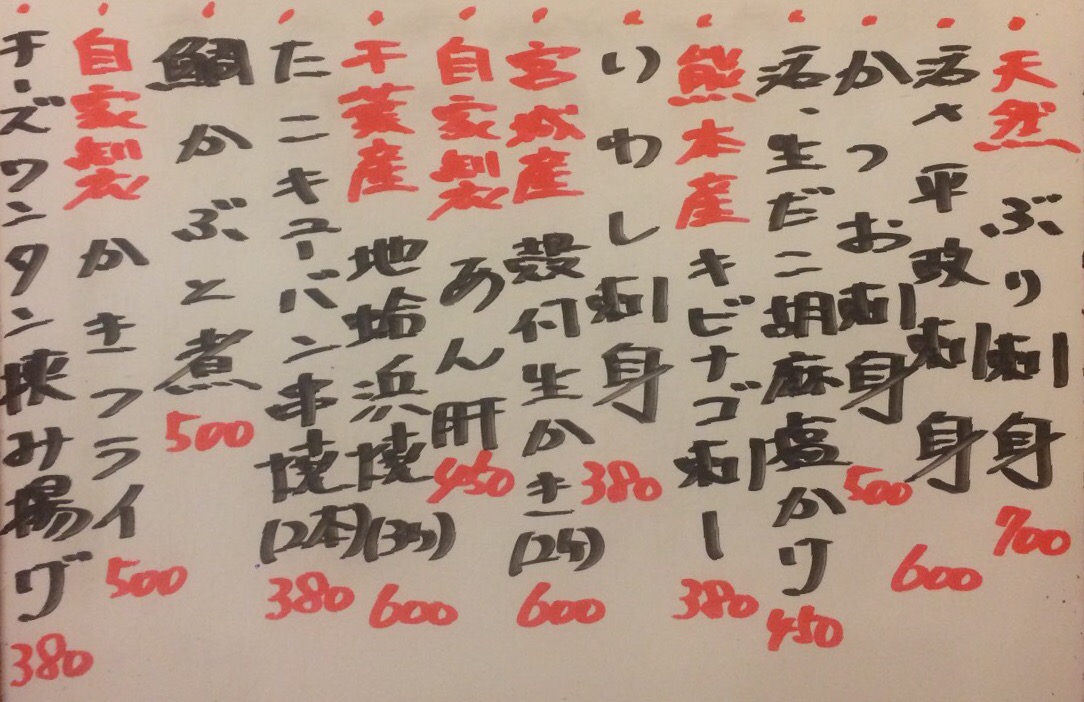 ・天然 ぶり刺身 700
・活〆 平政刺身 600
・かつお刺身 500
・活・生だこ胡麻塩かけ 450
・熊本産 キビナゴ刺し 380
・いわし刺身 380
・宮城産 殻付生かき(2ケ) 600
・自家製 あん肝 450
・千葉産 地蛤浜焼(3ケ) 600
・たこキューバン串焼(2本) 380
・鯛かぶと煮 500
・自家製 かきフライ 500
・チーズワンタン挟み揚げ 380